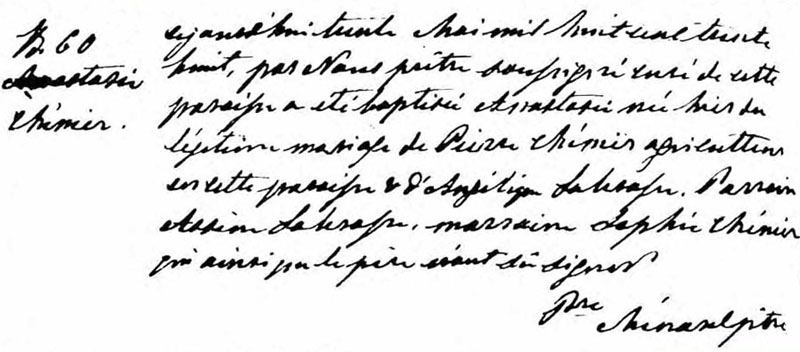 B. 60
Anastasie
Chénier.
cejourd'hui trente Mai mil huit cent trente
huit, par Nous prêtre soussigné curé de cette
paroisse a été baptisée Anastasie née hier du
légitime mariage de Pierre Chénier agriculteur
en cette paroisse & d'Angélique Labrosse. Parrain
Labrosse, marraine Sophie Chénier
qui ainsi que le père n'ont su signer
Ptre